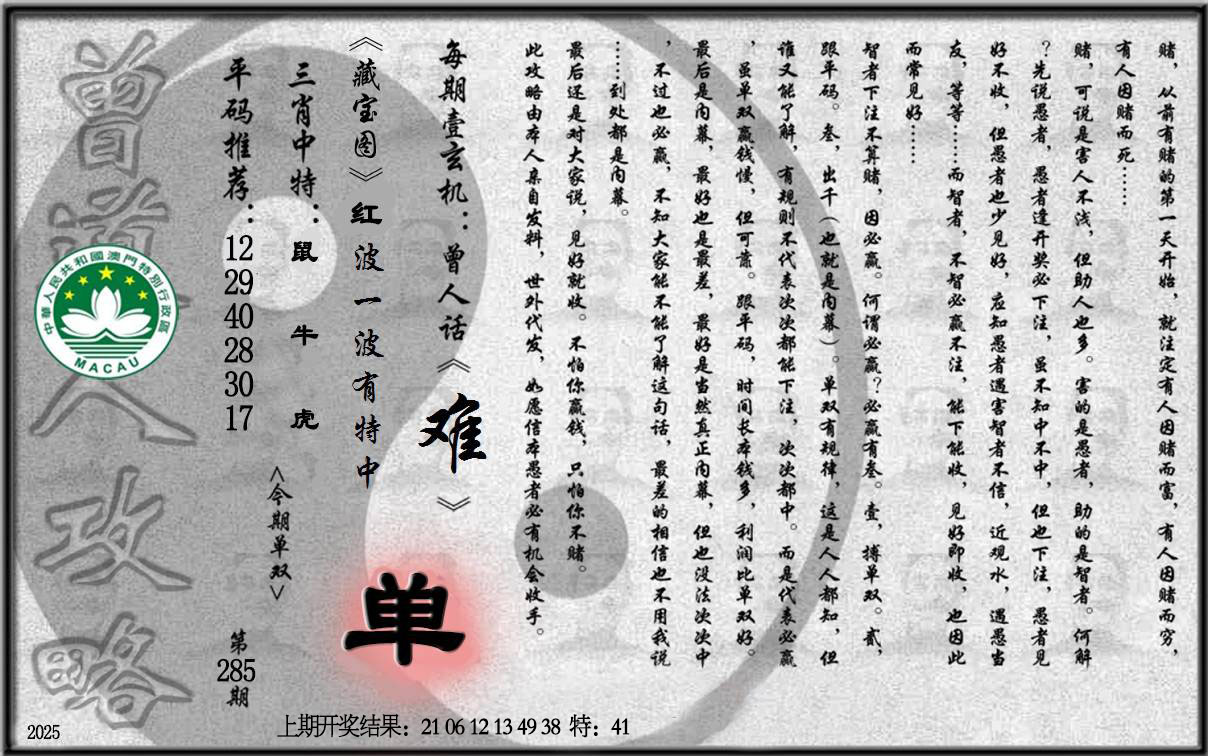 赌，从前有赌的第一天开始，就注定有人因赌而富，有人因赌而穷，
有人因赌而死……
赌，可说是害人不浅，但助人也多。害的是愚者，助的是智者。何解
？先说愚者，愚者逢开奖必下注，虽不知中不中，但也下注，愚者见
好不收，但愚者也少见好，应知愚者遇害智者不信，近观水，遇愚当
友，等等……而智者，不智必赢不注，能下能收，见好即收，也因此
而常见好……
智者下注不算赌，因必赢。何谓必赢？必赢有叁。壹，搏单双。贰，
跟平码。叁，出千（也就是内幕）。单双有规律，这是人人都知，但
谁又能了解，有规则不代表次次都能下注，次次都中。而是代表必赢
，虽单双赢钱慢，但可靠。跟平码，时间长本钱多，利润比单双好。
最后是内幕，最好也是最差，最好是当然真正内幕，但也没法次次中
，不过也必赢，不知大家能不能了解这句话，最差的相信也不用我说
……到处都是内幕。
最后还是对大家说，见好就收。不怕你赢钱，只怕你不赌。
此攻略由本人亲自发料，世外代发，如愿信本愚者必有机会收手。
每期壹玄机：曾人话《难》
《藏宝图》红波一波有特中
单
三肖中特：鼠牛虎
<今期单双>
平码推荐：12 29 40 28 30 17
第285期
曾道人攻略
中華人民共和國澳門特別行政區
MACAU
2025
上期开奖结果：21 06 12 13 49 38 特：41